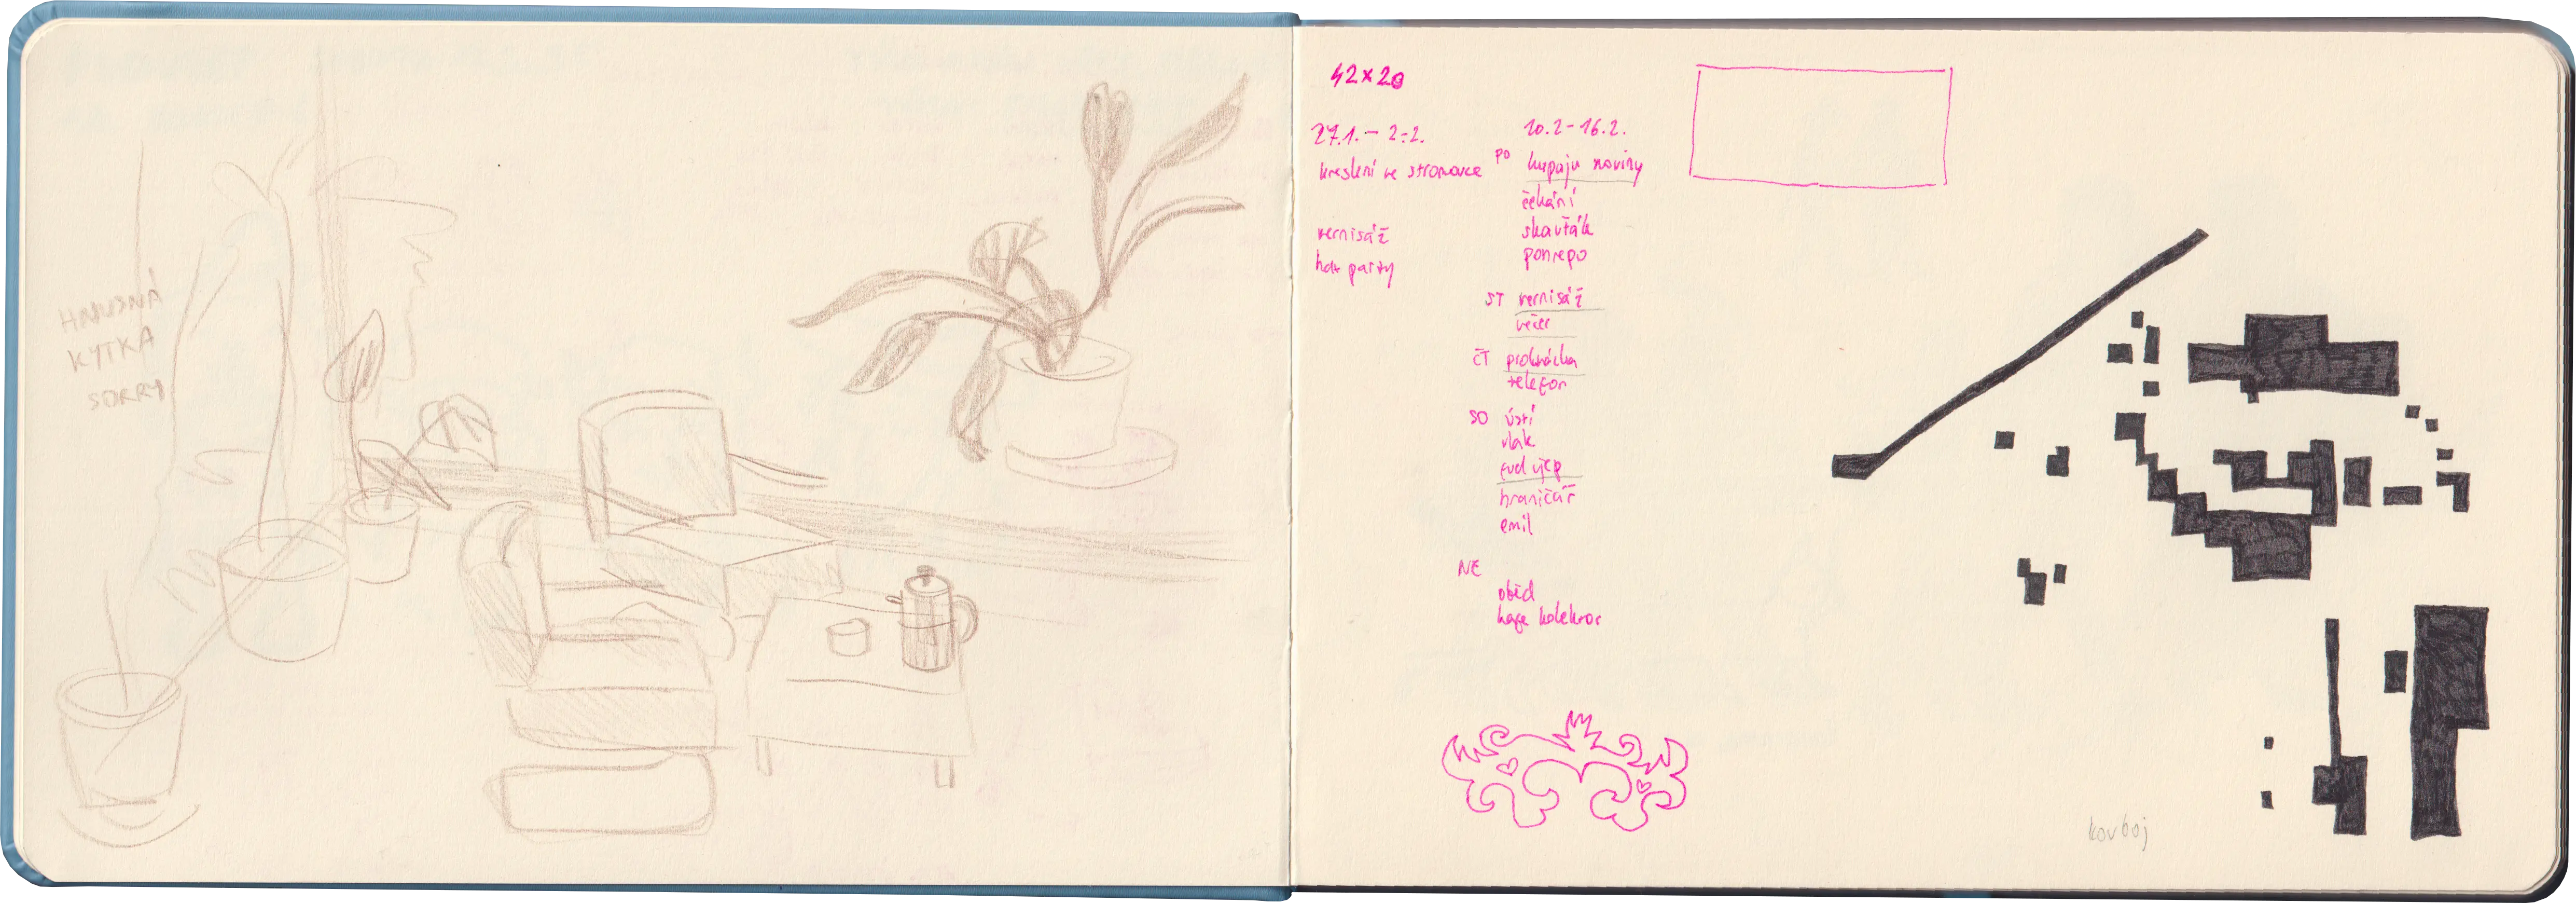 HNUSNÁ
KYTKA
SORRY
42×20
27.1. – 2.2.
kreslení ve stromovce
vernisáž
party
10.2 – 16.2.
PO kupuju noviny
čekání
skauťák
ponrepo
ST vernisáž
večer
ČT procházka
telefon
SO ústí
vlak
hraničář
emil
NE
oběd
kolektor
kovboj